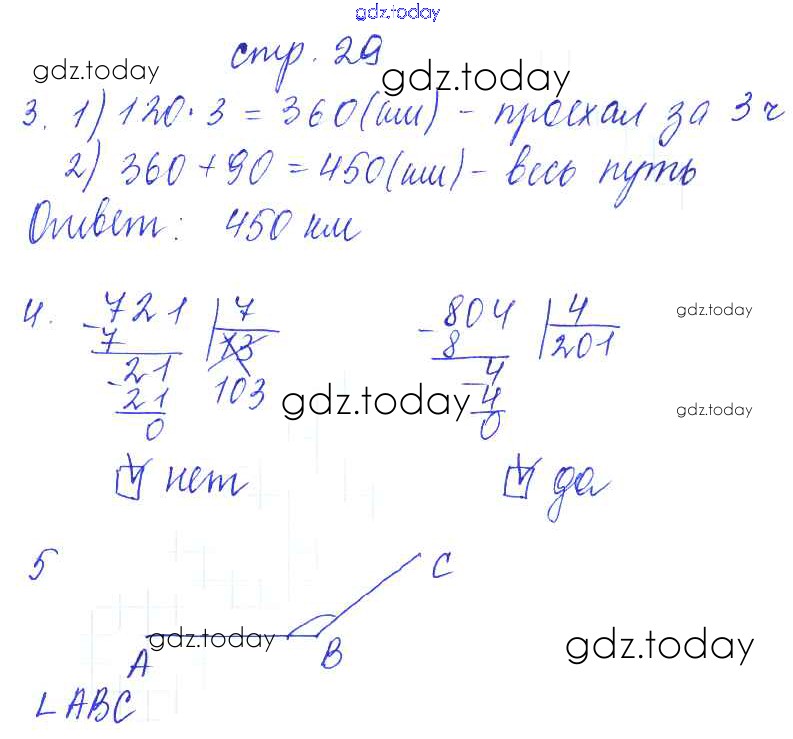 gdz.today
стр. 29
gdz.today gdz.today
3. 1) 120 · 3 = 360 (км) - проехал за 3 ч
2) 360 + 90 = 450 (км) - весь путь
Ответ: 450 км
4. 721 | 7 804 | 4 gdz.today
- 7 13 - 8 201
- 21 103 - 4
21 4 gdz.today gdz.today
0 0
нет да
5 C
gdz.today gdz.today
A B
∠ ABC